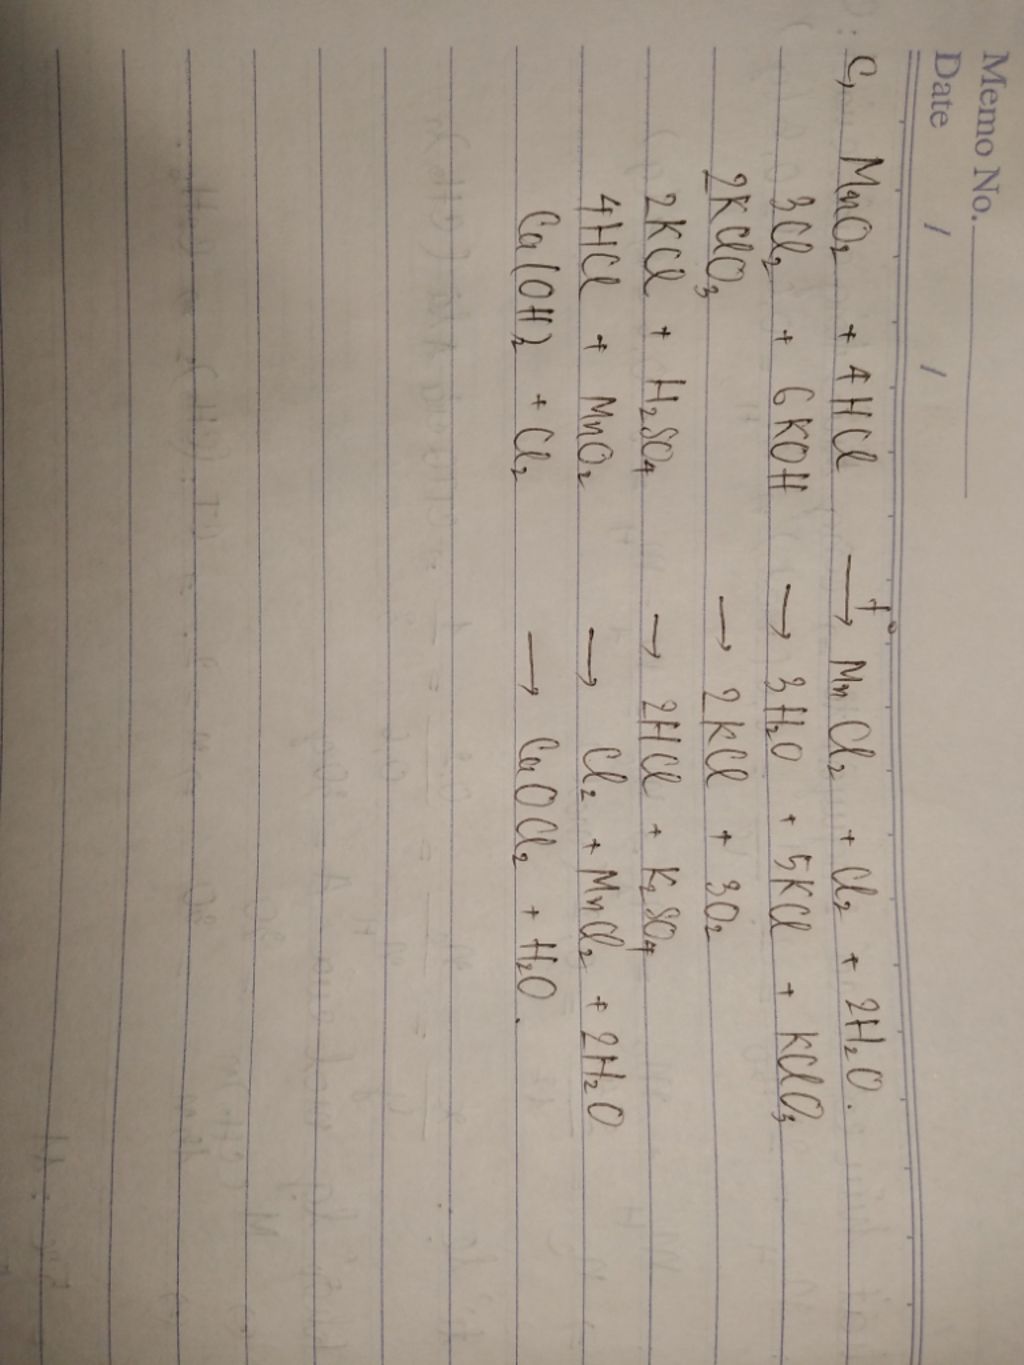 Memo No.
Date / /
c, MnO₂ + 4HCl —t°→ MnCl₂ + Cl₂ + 2H₂O.
3Cl₂ + 6KOH → 3H₂O + 5KCl + KClO₃
2KClO₃ → 2KCl + 3O₂
2KCl + H₂SO₄ → 2HCl + K₂SO₄
4HCl + MnO₂ → Cl₂ + MnCl₂ + 2H₂O
Ca(OH)₂ + Cl₂ → CaOCl₂ + H₂O.